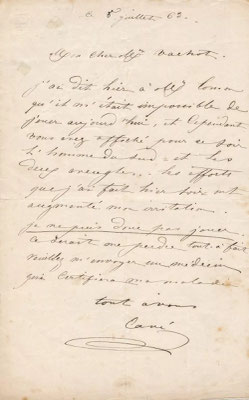 ce 8 juillet 62.
Mon cher Mr Vachot.
j'ai dit hier à Mr
qu'il m'était impossible de
jouer aujourd'hui, et cependant
vous avez affiché pour ce soir
l'homme du sud, et les
deux aveugles. les efforts
que j'ai fait hier soir ont
augmenté mon irritation.
je ne puis donc pas jouer.
ce serait me perdre tout à fait
veuillez m'envoyer un médecin
qui certifiera ma maladie
tout à vous